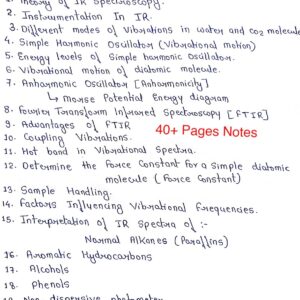 1. Theory of IR Spectroscopy.
2. Instrumentation In IR.
3. Different modes of Vibrations in water and CO2 molecule
4. Simple Harmonic Oscillator (Vibrational motion)
5. Energy levels of Simple harmonic Oscillator.
6. Vibrational motion of diatomic molecule.
7. Anharmonic Oscillator [Anharmonicity]
↳ morse Potential Energy diagram
8. Fourier Transform Infrared Spectroscopy [FTIR]
9. Advantages of FTIR
40+ Pages Notes
10. Coupling Vibrations.
11. Hot band in Vibrational Spectra.
12. Determine the Force Constant for a Simple diatomic
molecule (Force Constant)
13. Sample Handling.
14. Factors Influencing Vibrational Frequencies.
15. Interpretation of IR Spectra of :-
Normal Alkanes (Paraffins)
16. Aromatic Hydrocarbons
17. Alcohols
18. Phenols